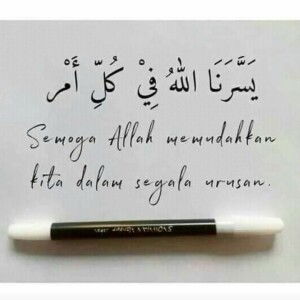 يَسَّرَنَا اللهُ فِيْ كُلِّ أَمْر
Semoga Allah memudahkan
kita dalam segala urusan.